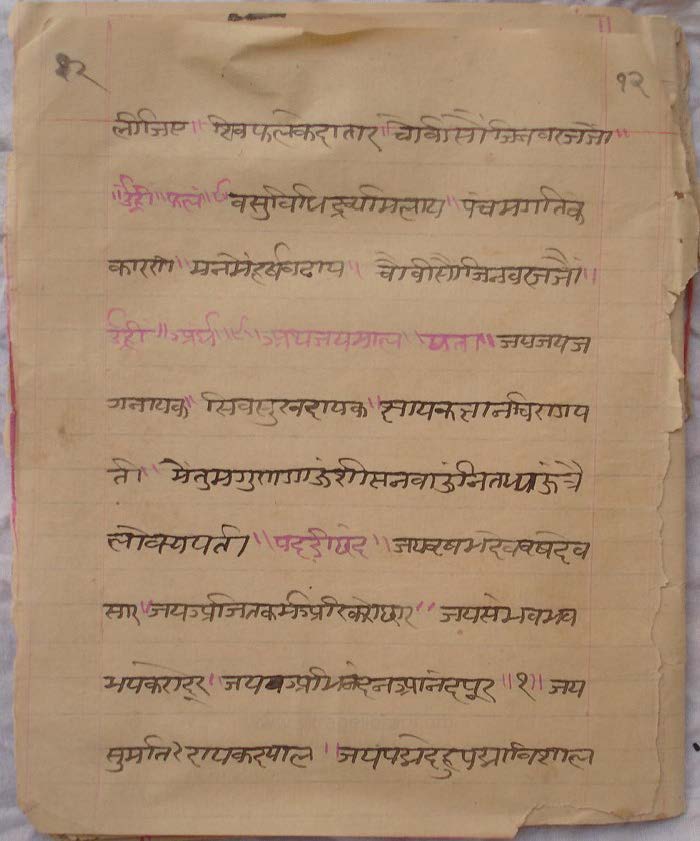 १२ १२
लीजिए ॥ शिवफलकेदातार चौवीसौंजिनवरजजौं ॥
॥ उँह्री ॥ फलं ॥ ९ वसुविधिद्रव्यमिलाय ॥ पंचमगतिकै
कारणै ॥ मनमैंहर्षवढाय ॥ चौवीसौजिनवरजजौं ॥
उँह्री ॥ अर्घ ॥ ९ ॥ अथजयमाल घता ॥ जयजयज
गनायक ॥ सिवसुखदायक ॥ ज्ञायकज्ञानविरागप
ती ॥ मैंतुमगुणगाऊंशीसनवाऊंनितध्याऊंत्रै
लोक्यपती ॥ पद्दडीछंद ॥ जयवृषभदेववृषदेव
सार ॥ जयअजितकर्मअरिकरोछार ॥ जयसंभवभव
भयकरोदूर ॥ जयअभिनंदनआनंदपूर ॥१॥ जय
सुमति रायकरपाल ॥ जयपद्मदेहदुपद्माविशाल